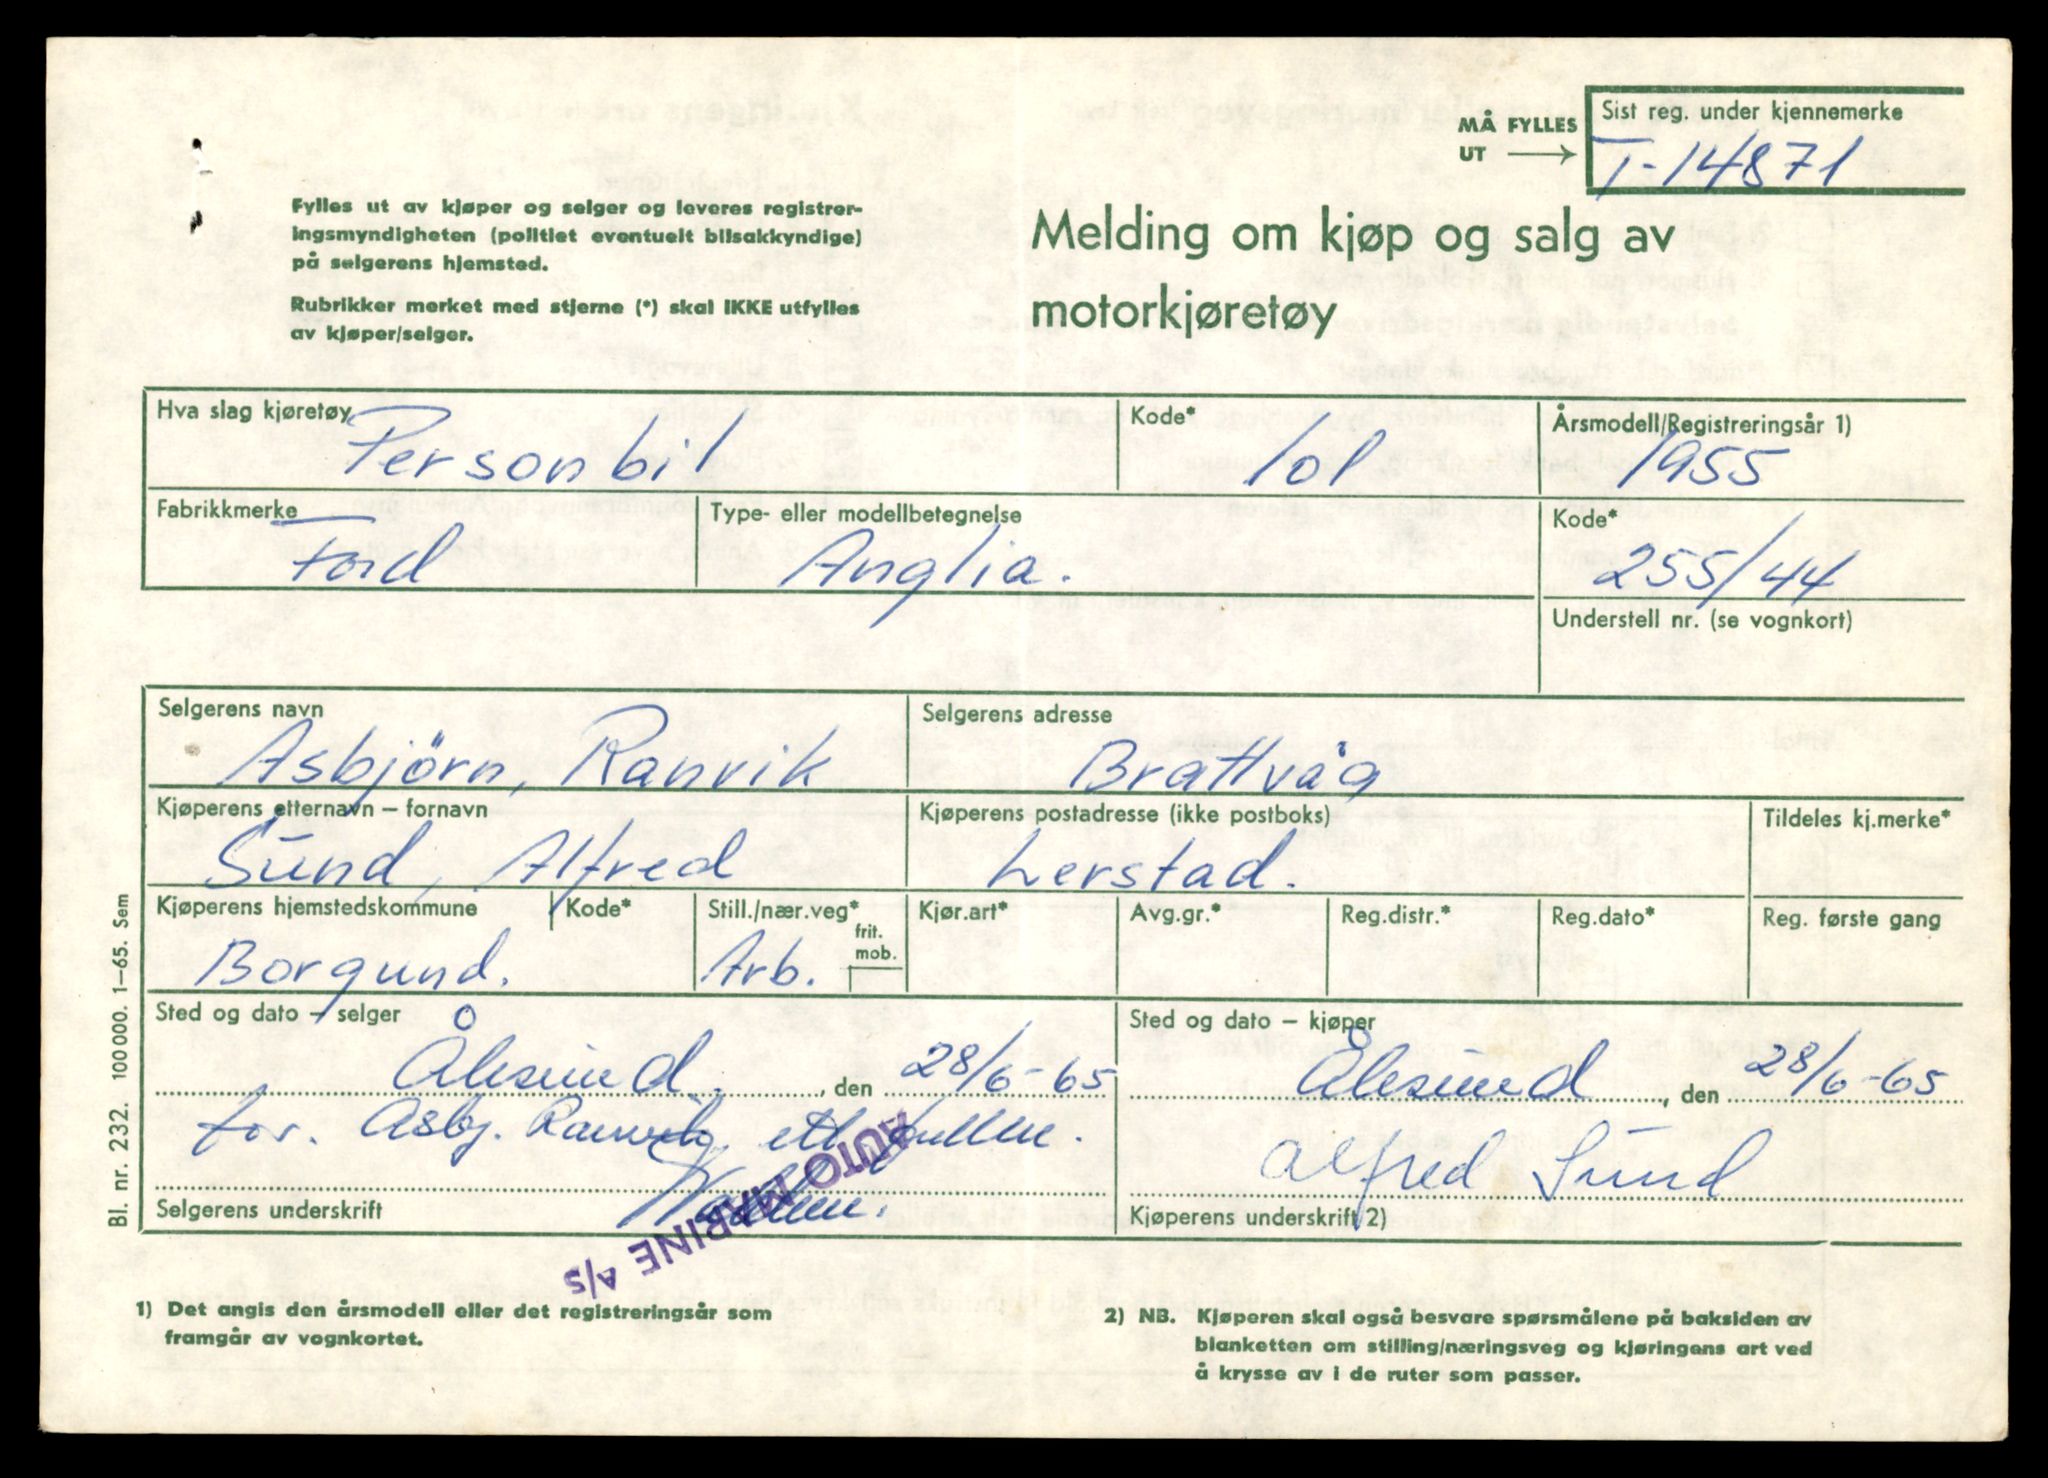 MÅ FYLLES UT
Sist reg. under kjennemerke
T-14871
Fylles ut av kjøper og selger og leveres registrer-
ingsmyndigheten (politiet eventuelt bilsakkyndige)
på selgerens hjemsted.
Rubrikker merket med stjerne (*) skal IKKE utfylles
av kjøper/selger.
Melding om kjøp og salg av
motorkjøretøy
Hva slag kjøretøy Kode* Årsmodell/Registreringsår 1)
Personbil 101 1955
Fabrikkmerke Type- eller modellbetegnelse Kode*
Ford Anglia. 255/44
Understell nr. (se vognkort)
Selgerens navn Selgerens adresse
Asbjörn, Ranvik Brattvåg
Kjøperens etternavn – fornavn Kjøperens postadresse (ikke postboks) Tildeles kj.merke*
Sund, Alfred Lerstad.
Kjøperens hjemstedskommune Kode* Still./nær.veg* frit. mob. Kjør.art* Avg.gr.* Reg.distr.* Reg.dato* Reg. første gang
Borgund. Arb.
Sted og dato – selger Sted og dato – kjøper
Ålesund, den 28/6-65 Ålesund, den 28/6-65
for. Asbj. Ranvik, ett fullm. Alfred Sund
Selgerens underskrift Kjøperens underskrift 2)
AUTO MARINE A/S
1) Det angis den årsmodell eller det registreringsår som
framgår av vognkortet.
2) NB. Kjøperen skal også besvare spørsmålene på baksiden av
blanketten om stilling/næringsveg og kjøringens art ved
å krysse av i de ruter som passer.
Bl. nr. 232. 100 000. 1–65. Sem